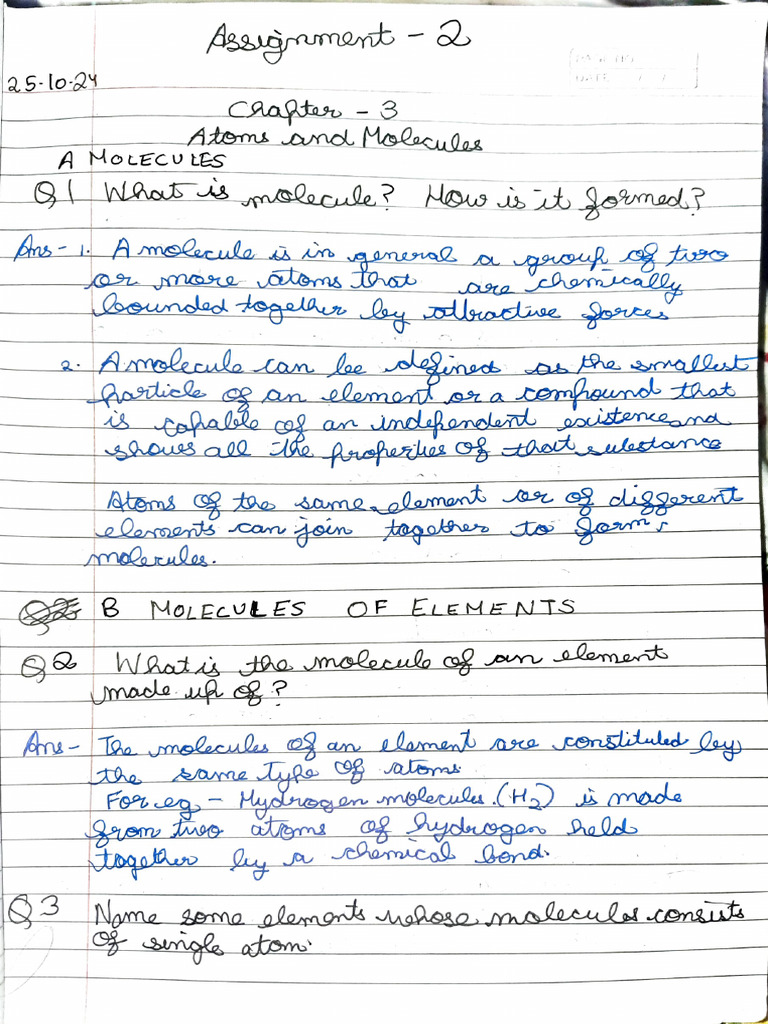 Assignment - 2
PAGE NO
DATE / /
25-10-24
Chapter - 3
Atoms and Molecules
A MOLECULES
Q1 What is molecule? How is it formed?
Ans- 1. A molecule is in general a group of two
or more atoms that are chemically
bounded together by attractive forces
2. A molecule can be defined as the smallest
particle of an element or a compound that
is capable of an independent existence and
shows all the properties of that substance
Atoms of the same element or of different
elements can join together to form
molecules.
B MOLECULES OF ELEMENTS
Q2 What is the molecule of an element
made up of?
Ans- The molecules of an element are constituted by
the same type of atoms.
For eg - Hydrogen molecules. (H2) is made
from two atoms of hydrogen held
together by a chemical bond.
Q3 Name some elements whose molecules consists
of single atom.